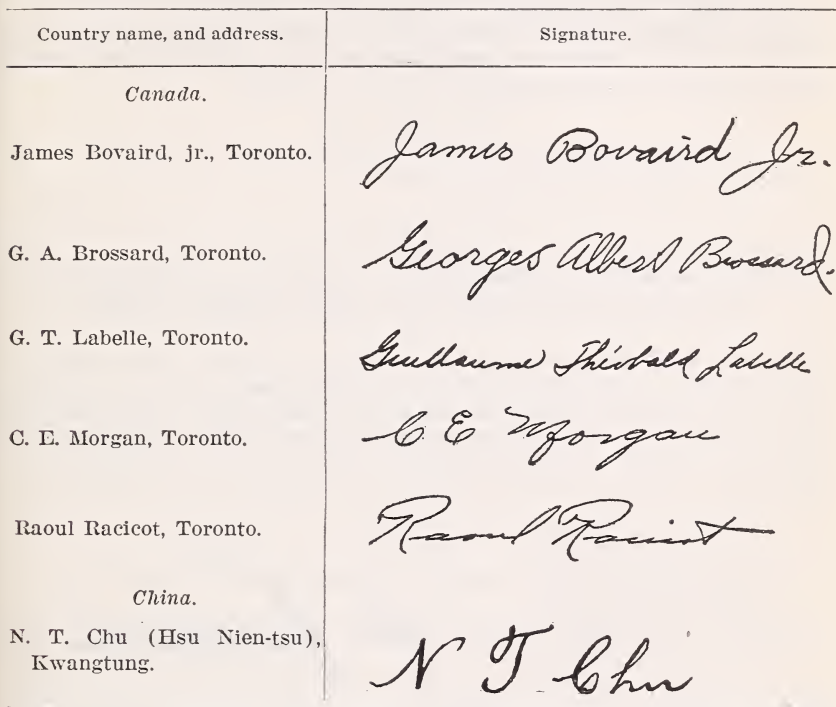 Country name, and address. Signature.
Canada.
James Bovaird, jr., Toronto. James Bovaird Jr.
G. A. Brossard, Toronto. Georges Albert Brossard.
G. T. Labelle, Toronto. Guillaume Théobald Labelle
C. E. Morgan, Toronto. C E Morgan
Raoul Racicot, Toronto. Raoul Racicot
China.
N. T. Chu (Hsu Nien-tsu), N T Chu
Kwangtung.